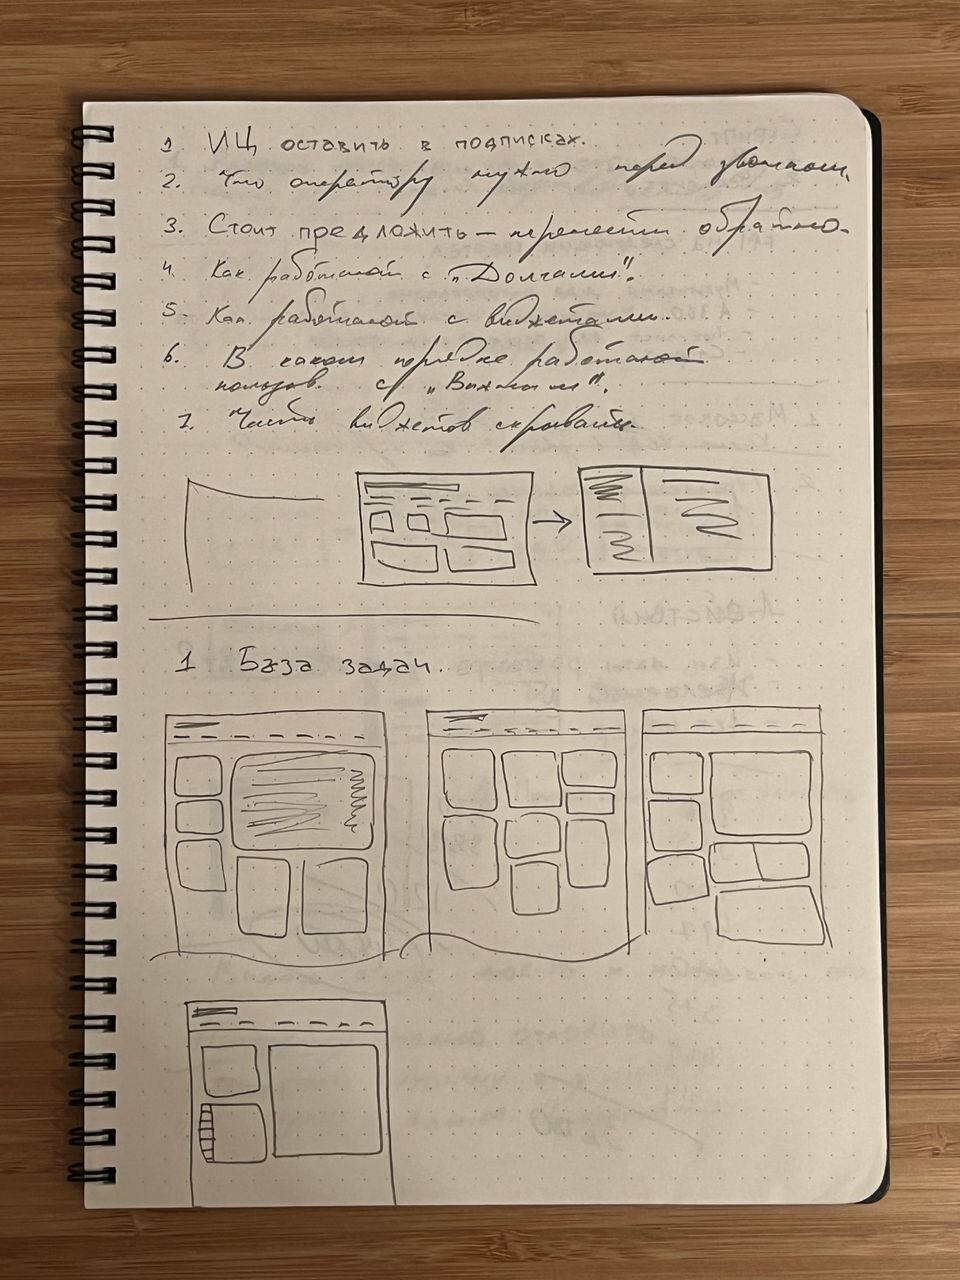 1. ИЦ оставить в подписках.
2. Что оператору нужно перед звонком.
3. Стоит предложить – перенести обратно.
4. Как работают с „Долгами".
5. Как работают с виджетами.
6. В каком порядке работают
пользов. с
7. Часть виджетов скрывать.
1 База задач.